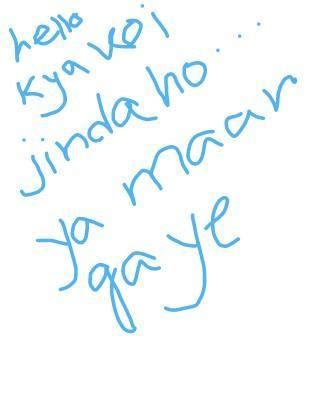 hello
kya koi
jinda ho...
ya maar
gaye